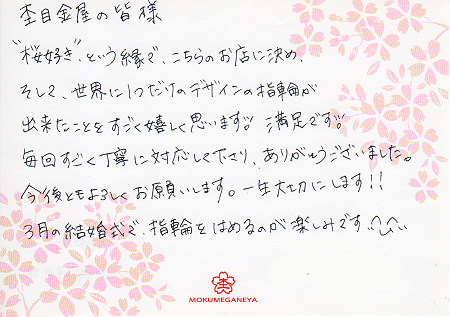 杢目金屋の皆様
"桜好き"という縁で、こちらのお店に決め、
そして、世界に1つだけのデザインの指輪が
出来たことをすごく嬉しく思います!! 満足です!!
毎回すごく丁寧に対応して下さり、ありがとうございました。
今後ともよろしくお願いします。一生大切にします!!
3月の結婚式で、指輪をはめるのが楽しみです
杢
MOKUMEGANEYA